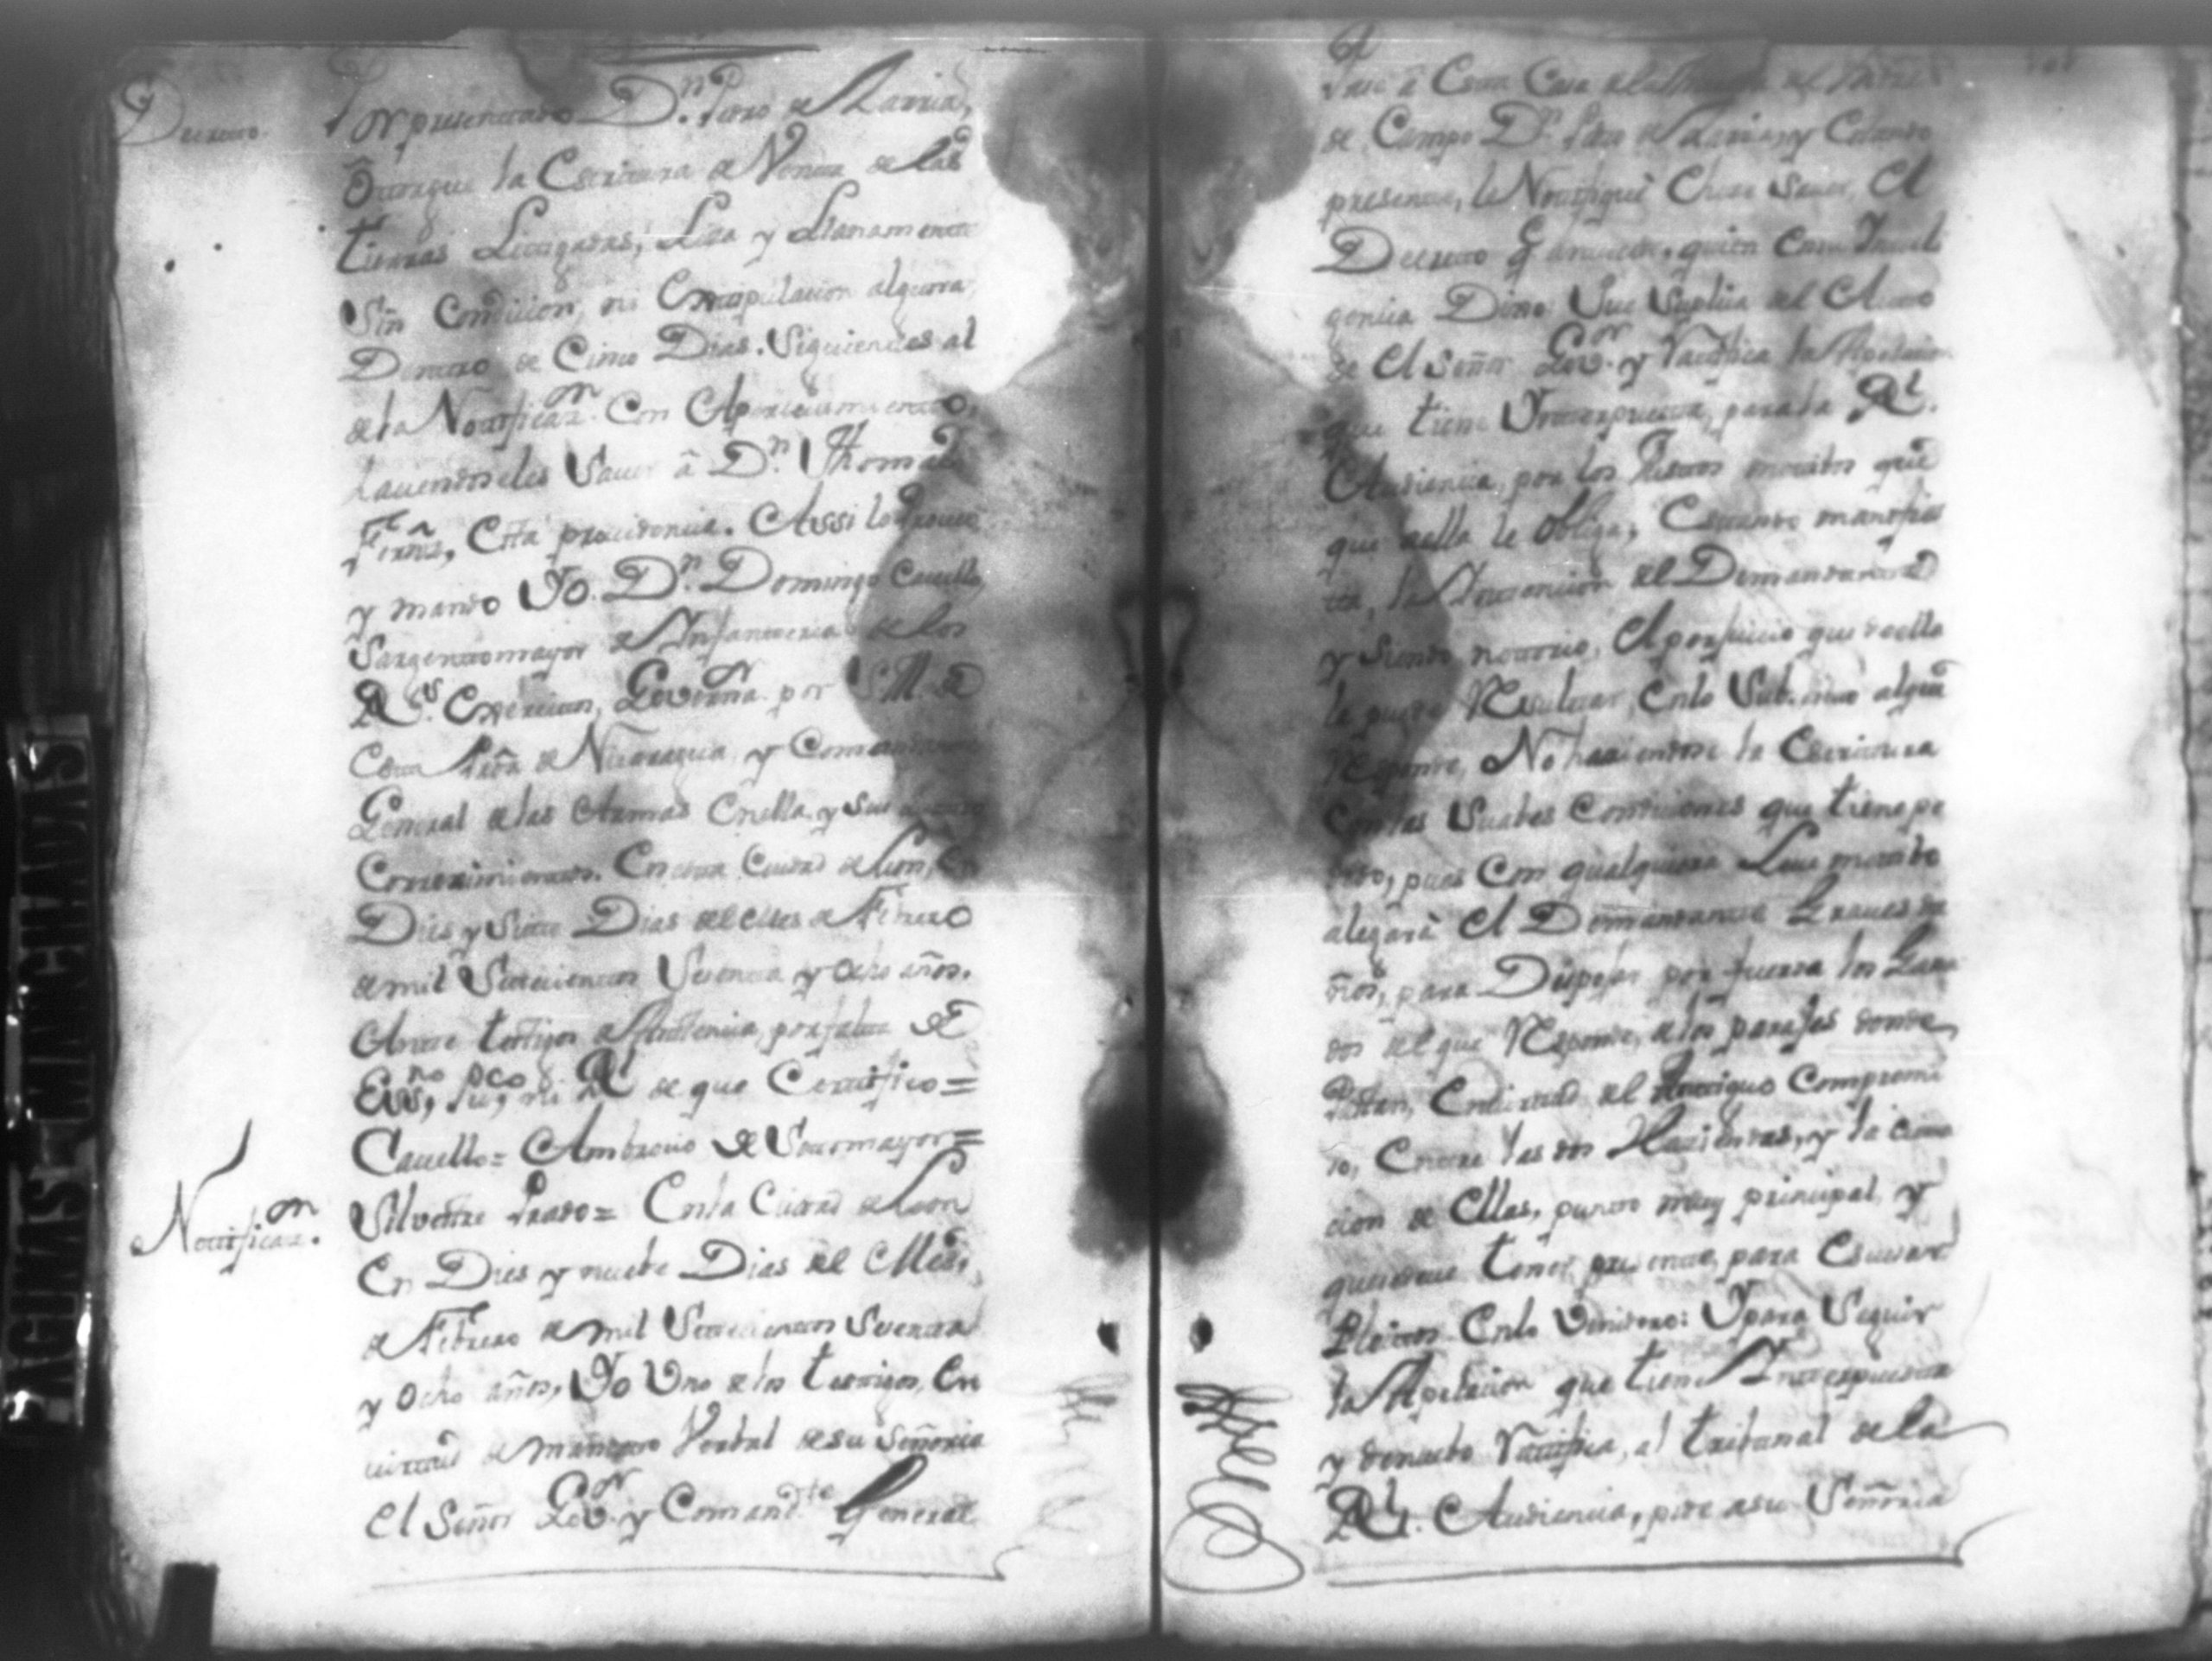 Decreto. Por presentado Dn. Pedro de Larria,
Otorgue la Escritura de Venta de las
tierras Litigadas, Lisa y Llanamente
Sin Condicion, ni Capitulacion alguna,
Dentro de Cinco Dias. Siguientes al
de la Notificazn. Con Apercivimiento,
haciendoseles Saver â Dn. Thomas
Fernz, Esta providencia. Assi lo Proveo
y mando Yo. Dn. Domingo Cavello,
Sargentomayor de Infanteria de los
Rs. Exercitos, Governor. por S.M. de
Esta Prova de Nicaragua, y Comandante
General de las Armas En ella, y sus
Contornos. En esta Ciudad de Leon, En
Dies y Siete Dias del Mes de Febrero
de mil Setecientos Sesenta y Ocho años.
Ante testigos de Asistencia, por falta de
Essno, Pco, ni Rl de que Certifico=
Cavello= Ambrocio de Sotomayor=
Notificazn. Silvestre Prado= En la Ciudad de Leon
En Dies y nuebe Dias del Mes,
de Febrero de mil Setecientos Sesenta
y Ocho años, Yo Uno de los testigos, En
virtud de mandato Verbal de su Señoria
el Señor Govor. y Comandte General
Pase â Esta Casa de la Morada del Maestre
de Campo Dn. Pedro de Larria, y Estando
presente, le Notifiquè E hice Saver, El
Decreto q antecede. quien En su Inteli
gencia Dixo: Que Suplica del Auto
de El Señor Govor. y Ratifica la Apelacion
que tiene Ynterpuesta, para la Rl.
Audiencia, por los Justos motivos que
que a ella le Obliga, Estando manifies
ta, la Intencion del Demandante
y Siendo notorio, El perjuicio que de ella
le puede Resultar, En lo Subcecivo al que
Responde, No haciendose la Escritura
Con las Suabes Condiciones que tiene pe
dido, pues Con qualquiera Leve motibo
alegarà El Demandante Graues da
ños, para Despojar por fuerza los Gana
dos del que Responde, de los parajes donde
Pastan, En virtud del Antiguo Compromi
so, Entre las dos Haziendas, y la
cion de Ellas, punto muy principal, y
que se deve tener presente, para Escusar
Pleitos En lo Venidero: Y para Seguir
la Apelacion que tiene Interpuesta
y de nuebo Ratifica, al tribunal de la
Rl. Audiencia, pide a su Señoria